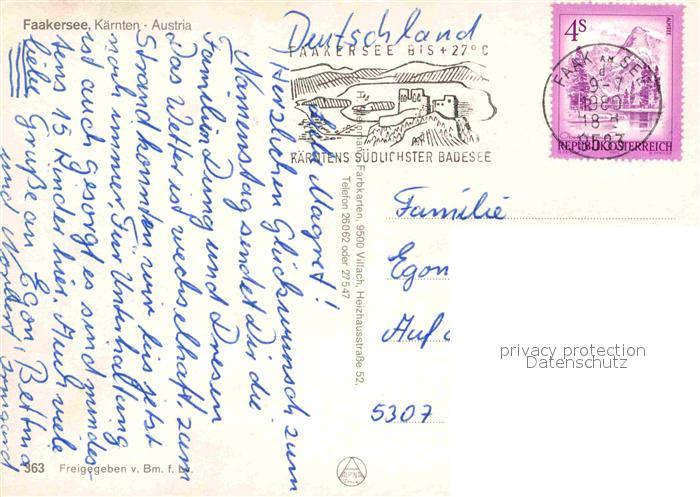 Faakersee, Kärnten - Austria
Deutschland
FAAKERSEE BIS + 27° C
KÄRNTENS SÜDLICHSTER BADESEE
4S
ALMSEE
REPUBLIK ÖSTERREICH
FAAK AM SEE
1980
18
Magret!
Herzlichen Glückwunsch zum
Namenstag sendet Dir die
Familien Dung und Dresen
Das Wetter ist wechselhaft. zum
Strand konnten wir bis jetzt
noch immer. Für Unterhaltung
ist auch gesorgt es sind mindes-
tens 15 Kinder hier. Auch viele
liebe Grüße an Egon, Bettina
und Norbert, Irmgard
Farbkarten, 9500 Villach, Heizhausstraße 52,
Telefon 26062 oder 27547
Familie
Egon
Auf
5307
privacy protection
Datenschutz
363 Freigegeben v. Bm. f. Lv.